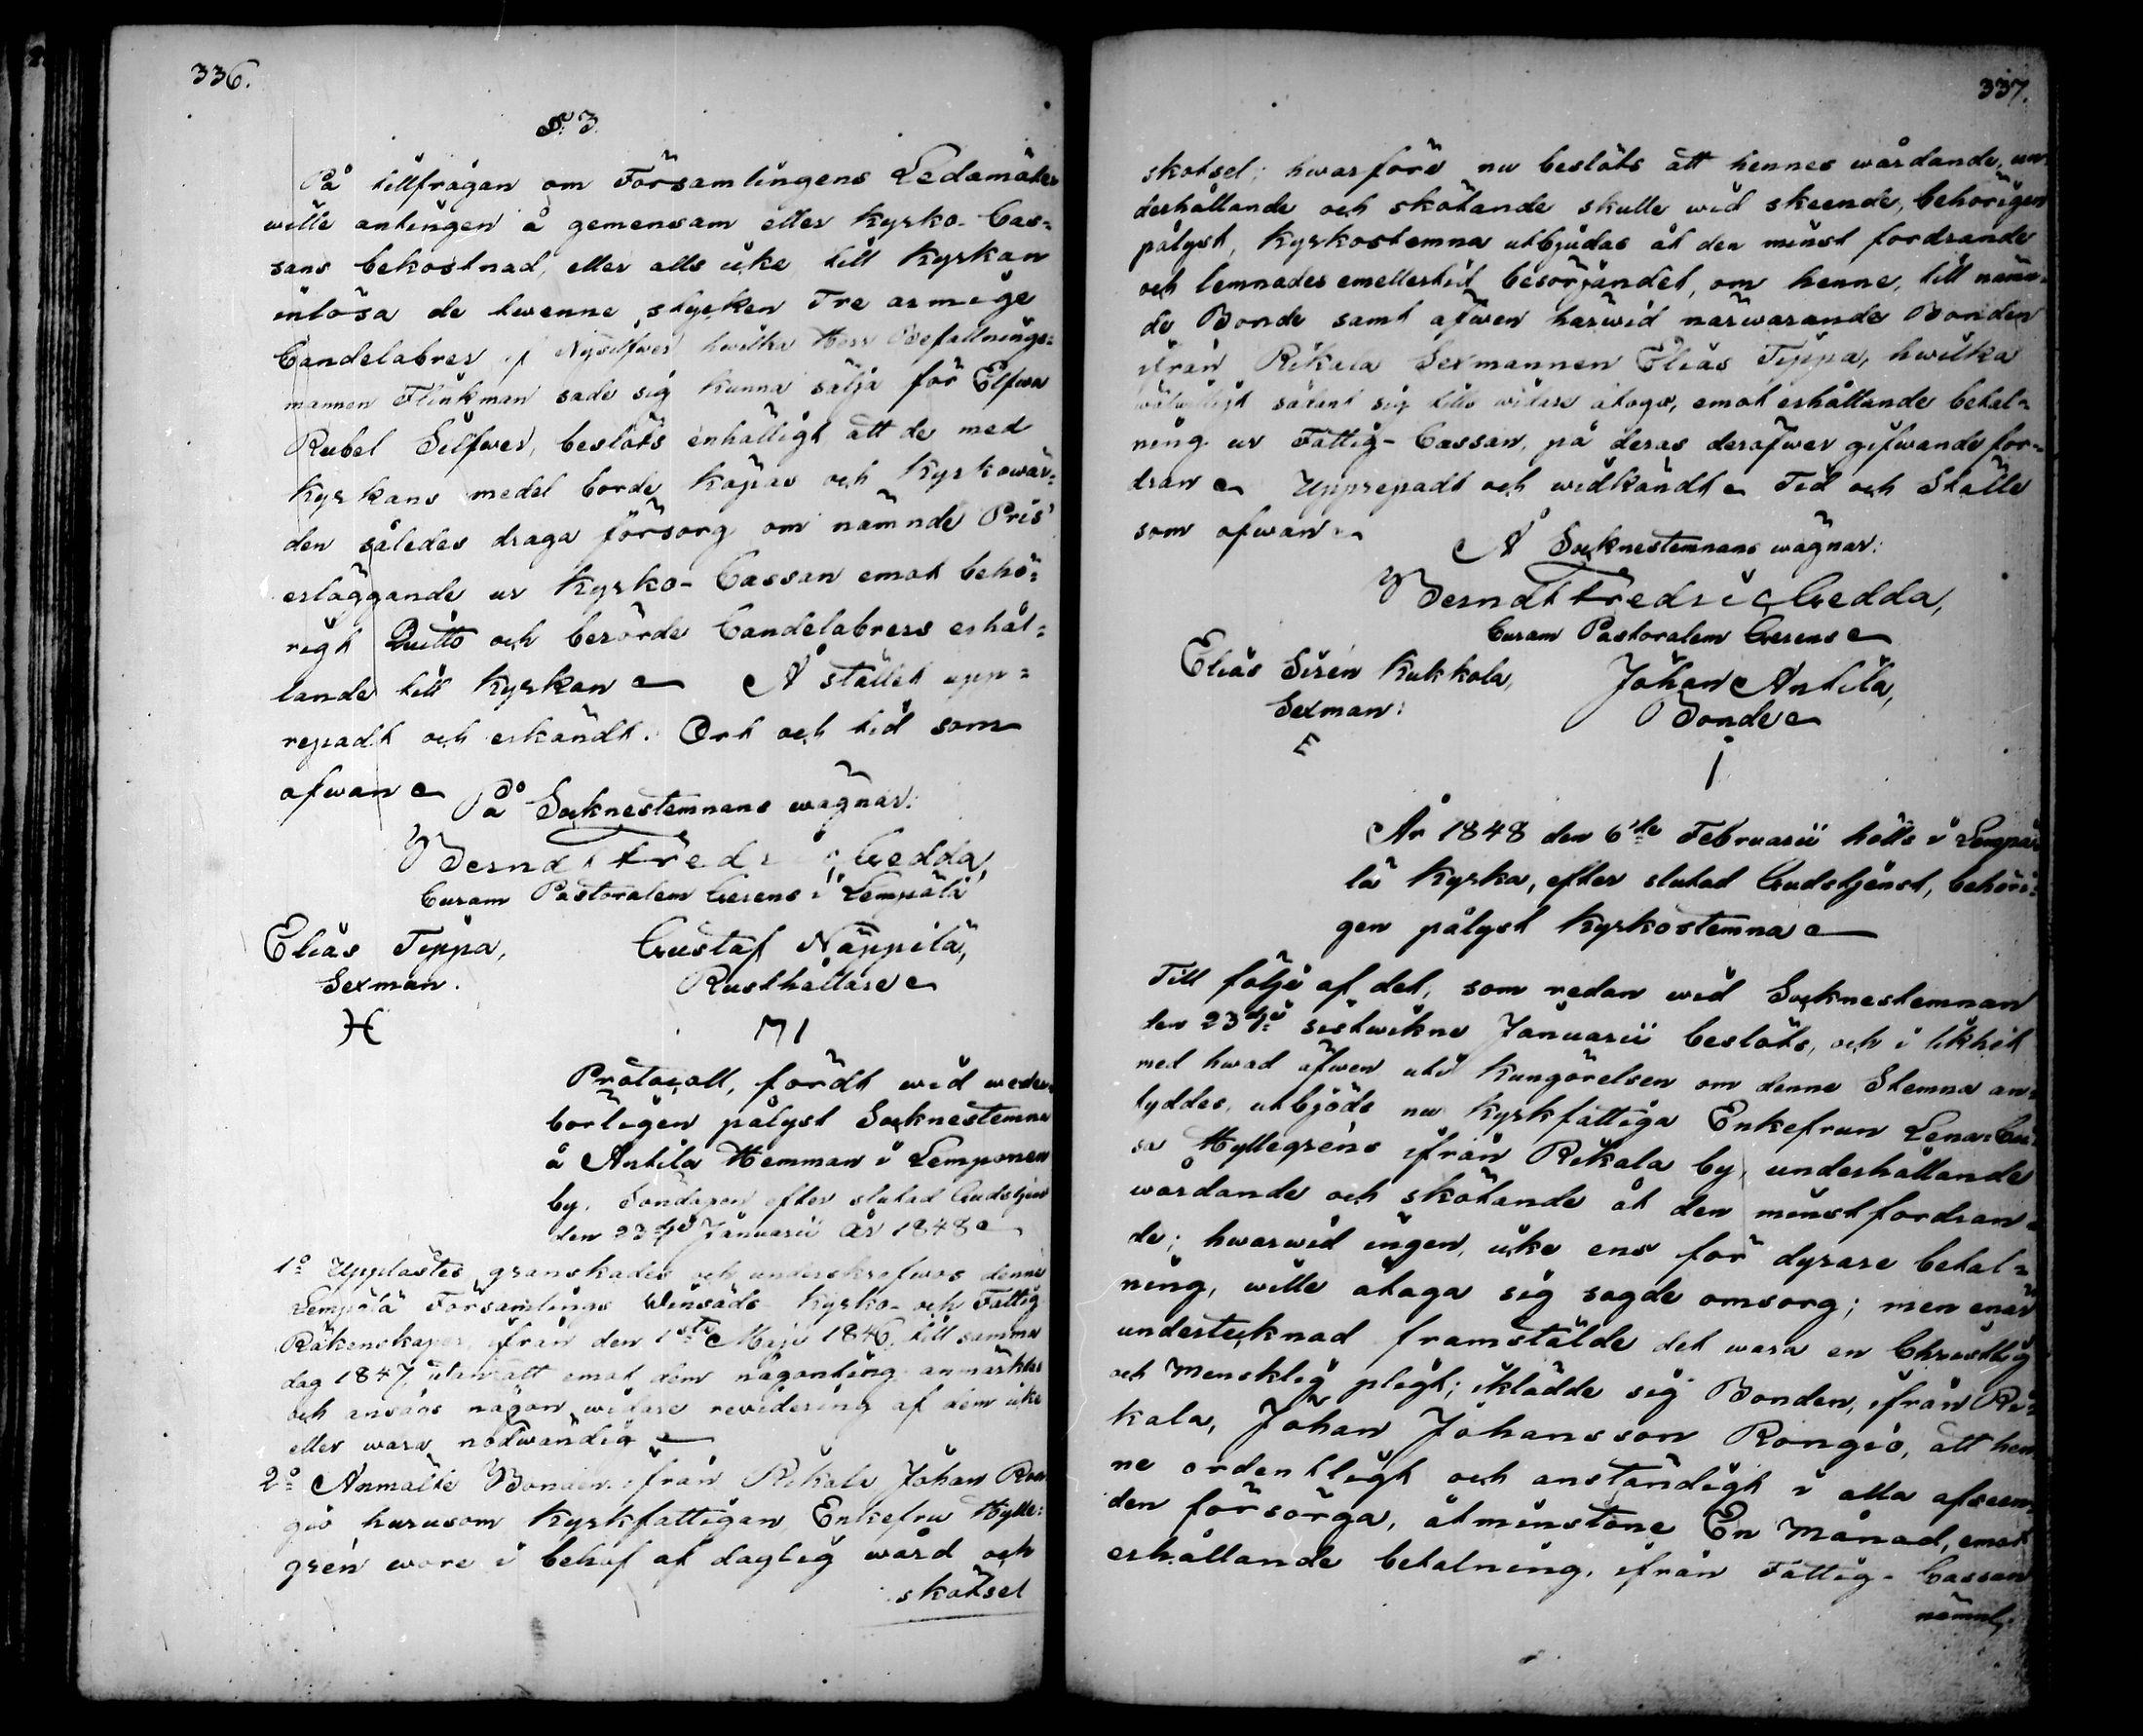 336.
§. 3.
På tillfrågan om Församlingens Ledamöter
wille antingen å gemensam eller Kyrko-Cas=
sans bekostnad, eller alls icke till Kyrkan
inlösa de twenne stycken Tre armige
Candelabrer af Nysilfwer hwilka Herr Befallnings=
mannen Flinkman sade sig kunna sälja för Elfwa
Rubel Silfwer, beslöts enhälligt att de med
Kyrkans medel borde köpas och Kyrkowär=
den således draga försorg om nämnde Pris
erläggande ur Kyrko-Cassan emot behö=
rigt Quitto och berörde Candelabrers erhål=
lande till Kyrkan. Å stället upp=
repadt och erkändt. Ort och tid som
ofwan
På Socknestemnans wägnar:
Berndt Fredric Gedda,
Curam Pastoralem Gerens i Lempälä
Elias Tippa,
Sexman.
Gustaf Näppilä,
Rusthållare
Protocoll, fördt wid weder=
börligen pålyst Socknestemna
å Antila Hemman i Lemponen
by, Söndagen efter slutad Gudstjenst
den 23dje Januarii År 1848
1º Upplästes granskades och underskrefwos denne
Lempälä Församlings Winsäds Kyrko- och Fattig
Räkenskaper, ifrån den 1sta Maji 1846, till samma
dag 1847, utan att emot dem någonting anmärktes
och ansågs någon widare revidering af dem icke
eller wara nödwändig
2º Anmälte Bonden ifrån Rikala Johan Ron=
gio hurusom Kyrkfattigan Enkefru Hylle=
grén wore i behof af daglig wård och
skötsel
337.
skötsel; hwarföre nu beslöts att hennes wårdande, un=
derhållande och skötande skulle wid skeende, behörigen
pålyst, Kyrkostemna utbjudas åt den minst fordrande
och lemnades emellertid besörjandet, om henne, till nämn=
de Bonde samt äfwen härwid närwarande Bonden
ifrån Rikala Sexmannen Elias Tippa, hwilka
wälwilligt sådant sig tills widare åtogo, emot erhållande betal=
ning ur Fattig-Cassan, på deras deröfwer gifwande for=
dran. Upprepadt och widkändt. Tid och Ställe
som ofwan
Å Socknestemnans wägnar:
Berndt Fredric Gedda,
Curam Pastoralem Gerens
Elias Sirén Kukkola,
Sexman:
Johan Antila,
Bonde
År 1848 den 6te Februarii hölls i Lempä=
lä Kyrka, efter slutad Gudstjenst, behöri=
gen pålyst Kyrkostemna
Till följe af det, som redan wid Socknestemnan
den 23dje sistwikne Januarii beslöts, och i likhet
med hwad äfwen uti Kungörelsen om denne Stemna an=
tyddes, utbjöds nu Kyrkfattiga Enkefrun Lena Cai=
sa Hyllegréns ifrån Rikala by, underhållande
wårdande och skötande åt den minst fordran=
de; hwarwid ingen, icke ens för dyrare betal=
ning, wille åtaga sig sagde omsorg; men enär
undertecknad framstälde det wara en Christlig
och Mensklig pligt; iklädde sig Bonden, ifrån Ri=
kala, Johan Johansson Rongio, att hen=
ne ordentligt och anständigt i alla afseen=
den försörga, åtminstone En Månad, emot
erhållande betalning, ifrån Fattig-Cassan
nämnl.